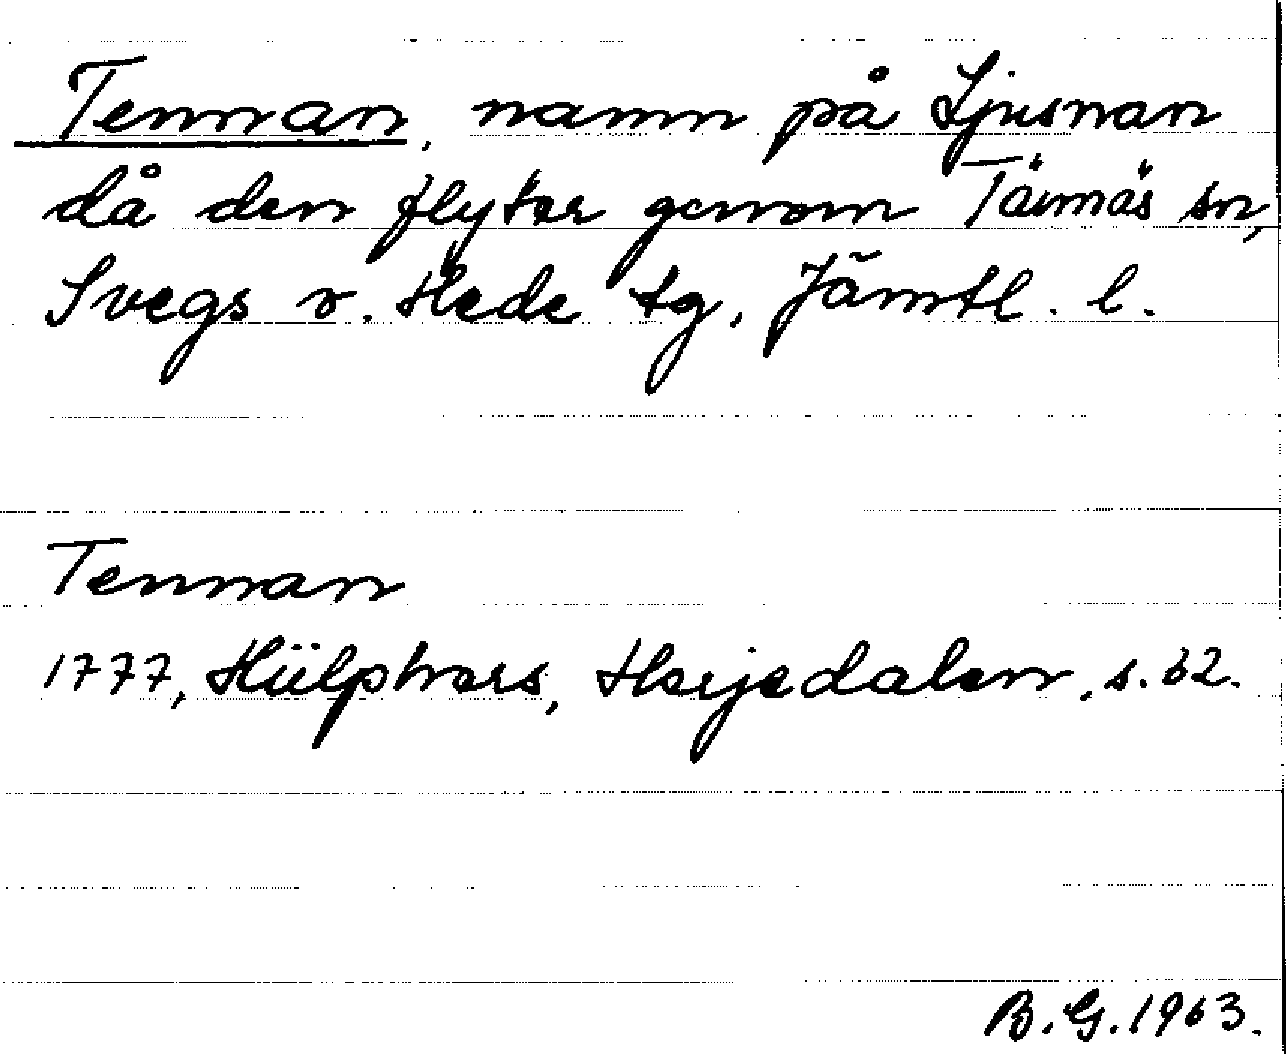 Tennan, namn på Ljusnan
då den flyter genom Tännäs sn,
Svegs o. Hede tg, Jämtl. l.
Tennan
1777, Hülphers, Herjedalen, s. 62.
B. G. 1963.